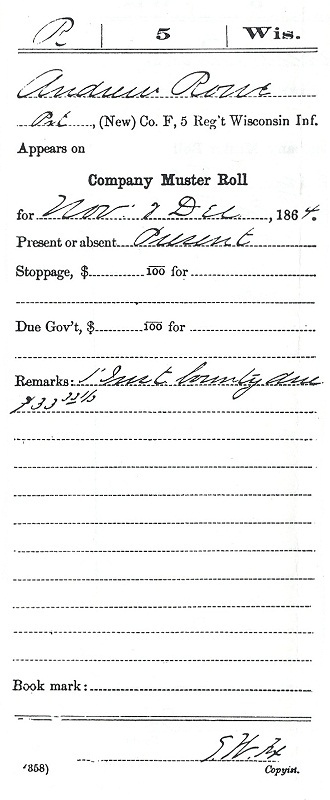 R | 5 | Wis.
Andrew Rowe
Pvt, (New) Co. F, 5 Reg't Wisconsin Inf.
Appears on
Company Muster Roll
for Nov. & Dec, 1864.
Present or absent Present
Stoppage, $ 100 for
Due Gov't, $ 100 for
Remarks: 1' Inst. bounty due
$33 33 1/3
Book mark:
(358) Copyist.